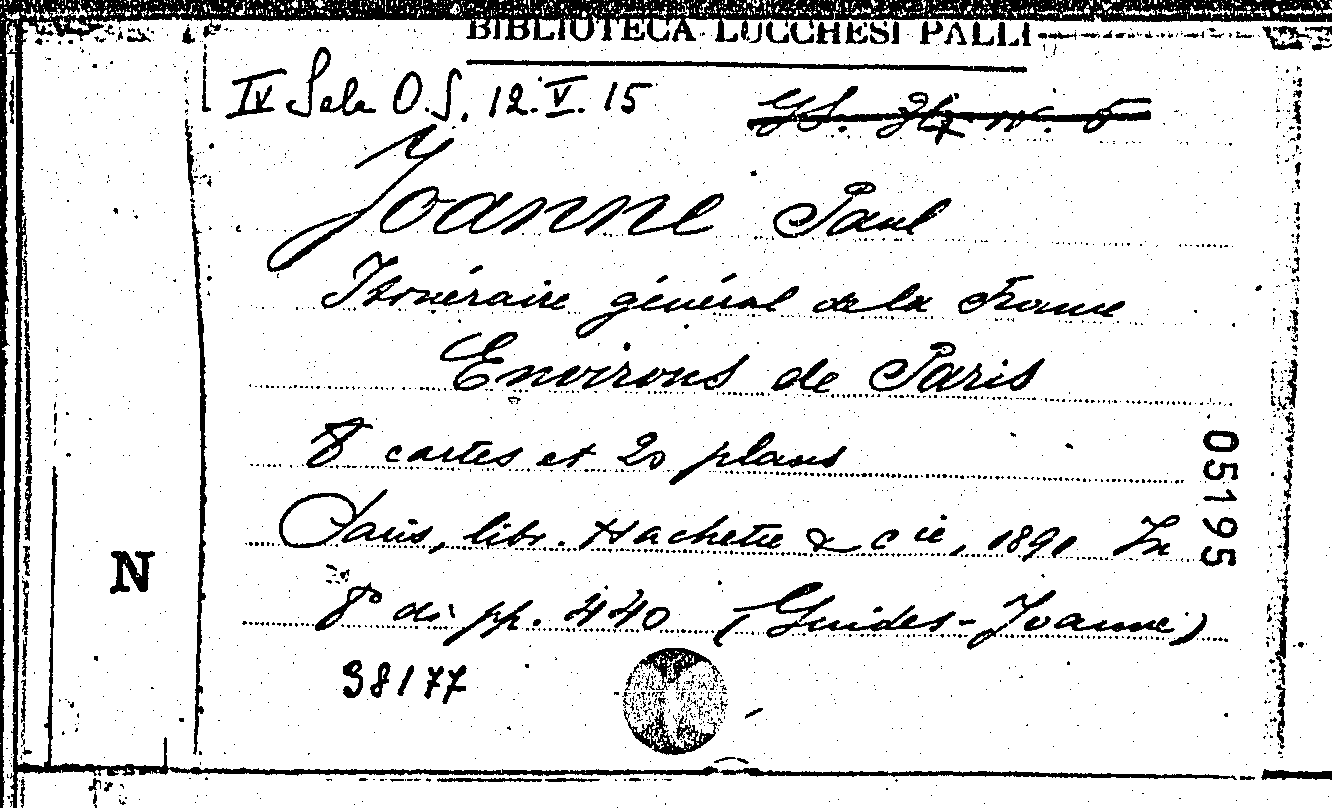 BIBLIOTECA LUCCHESI PALLI
IV Sala O.S. 12.V.15
Joanne Paul
Itinéraire général de la France
Environs de Paris
8 cartes et 20 plans
Paris, libr. Hachette & cie, 1891 In
8° di pp. 440 (Guides-Joanne)
38177
N
05195